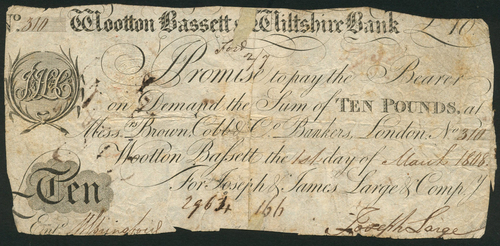 No. 310 Wootton Bassett & Wiltshire Bank £10
Promise to pay the Bearer
on Demand the Sum of TEN POUNDS, at
Mess.rs Brown, Cobb & Co. Bankers, London No 310
Wootton Bassett the 1st day of March
Ten
For Joseph & James Large & Comp.y
2963 166
Joseph Large